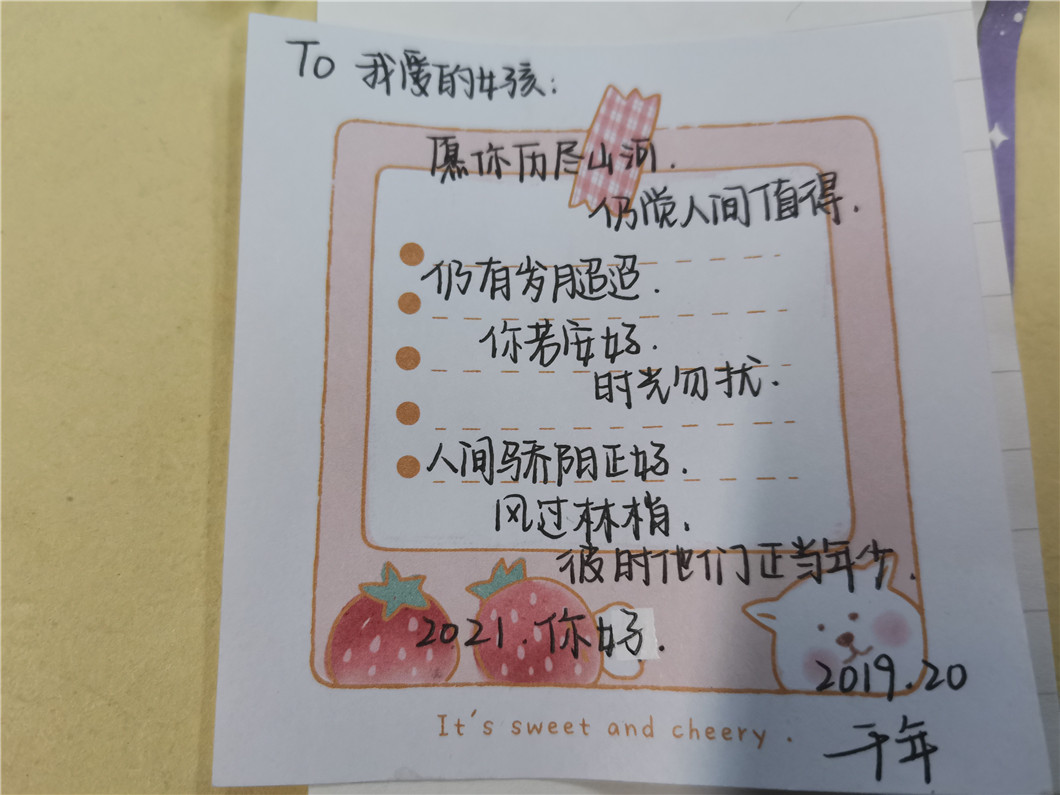 To 我爱的女孩:
愿你历尽山河.
仍觉人间值得.
仍有岁月迢迢.
你若安好.
时光勿扰.
人间骄阳正好.
风过林梢,
彼时他们正当年少.
2021.你好.
2019.20
千年
It's sweet and cheery.